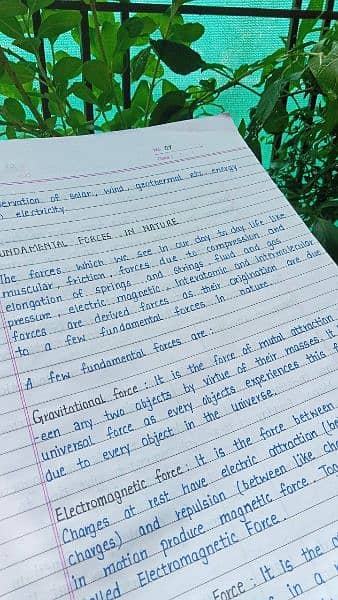 No. 07
Date:
servation of solar, wind, geothermal etc. energy
electricity
UNDAMENTAL FORCES IN NATURE
The forces which we see in our day to day life like
muscular, friction, forces due to compression and
elongation of springs and strings, fluid and gas
pressure, electric, magnetic, interatomic and intermolecular
forces are derived forces as their origination are due
to a few fundamental forces in nature.
A few fundamental forces are :
Gravitational force : It is the force of mutal attraction
-een any two objects by virtue of their masses. It
universal force as every objects experiences this f
due to every object in the universe.
Electromagnetic force : It is the force between
Charges at rest have electric attraction (be
charges) and repulsion (between like cha
in motion produce magnetic force. Toge
lled Electromagnetic Force.
Force : It is the
in a